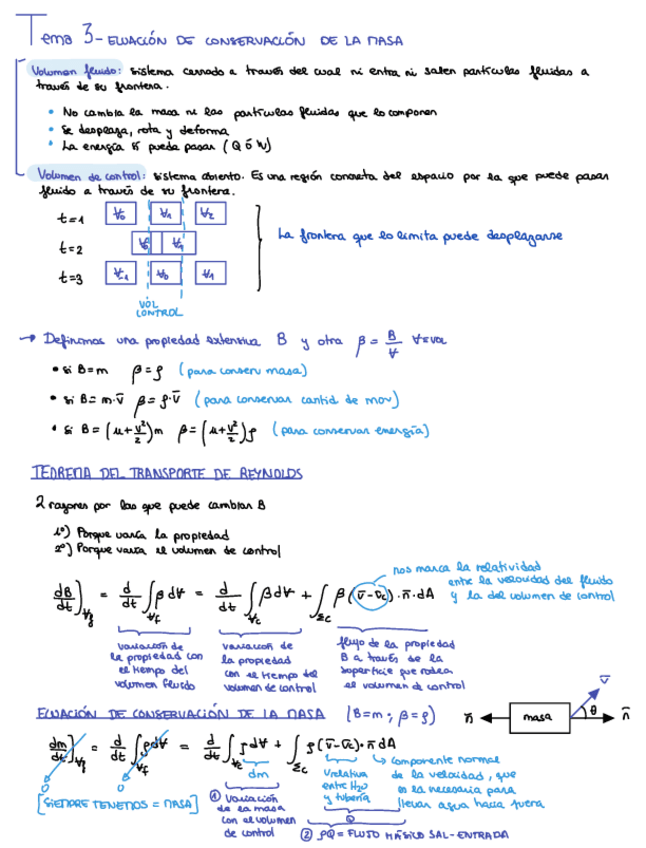 Tema 3- ECUACIÓN DE CONSERVACIÓN DE LA MASA
Volumen fluido: sistema cerrado a través del cual ni entra ni salen partículas fluidas a
través de su frontera.
• No cambia la masa ni las partículas fluidas que lo componen
• Se desplaza, rota y deforma
• La energía sí puede pasar (Q ó W)
Volumen de control: sistema abierto. Es una región concreta del espacio por la que puede pasar
fluido a través de su frontera.
t=1 V₀ V₁ V₂
La frontera que lo limita puede desplazarse
t=2 V₀ V₁
t=3 V₋₁ V₀ V₁
VOL
CONTROL
→ Definimos una propiedad extensiva B y otra β = B/V V=vol
• si B=m β=ρ (para conserv masa)
• si B= m·v̄ β= ρ·v̄ (para conservar cantid de mov)
• si B= (u+v²/2)m β=(u+v²/2)ρ (para conservar energía)
TEOREMA DEL TRANSPORTE DE REYNOLDS
2 razones por las que puede cambiar B
1º) Porque varía la propiedad
2º) Porque varia el volumen de control
nos marca la relatividad
entre la velocidad del fluido
y la del volumen de control
dB/dt]Vf = d/dt ∫Vf β dV = d/dt ∫Vc β dV + ∫Σc β(v̄-v̄c)·n̄·dA
variación de
la propiedad con
el tiempo del
volumen fluido
variación de
la propiedad
con el tiempo del
volumen de control
flujo de la propiedad
B a través de la
superficie que rodea
el volumen de control
ECUACIÓN DE CONSERVACIÓN DE LA MASA (B=m ; β=ρ)
n̄ masa θ v̄ n̄
dm/dt]Vf = d/dt ∫Vf ρdV = d/dt ∫Vc ρdV + ∫Σc ρ(v̄-v̄c)·n̄ dA
0 0
[SIEMPRE TENEMOS = MASA]
dm
① Variación
de la masa
con el volumen
de control
Vrelativa
entre H₂O
y tubería
componente normal
de la velocidad, que
es la necesaria para
llevar agua hacia fuera
Q
② ρQ = FLUJO MÁSICO SAL-ENTRADA